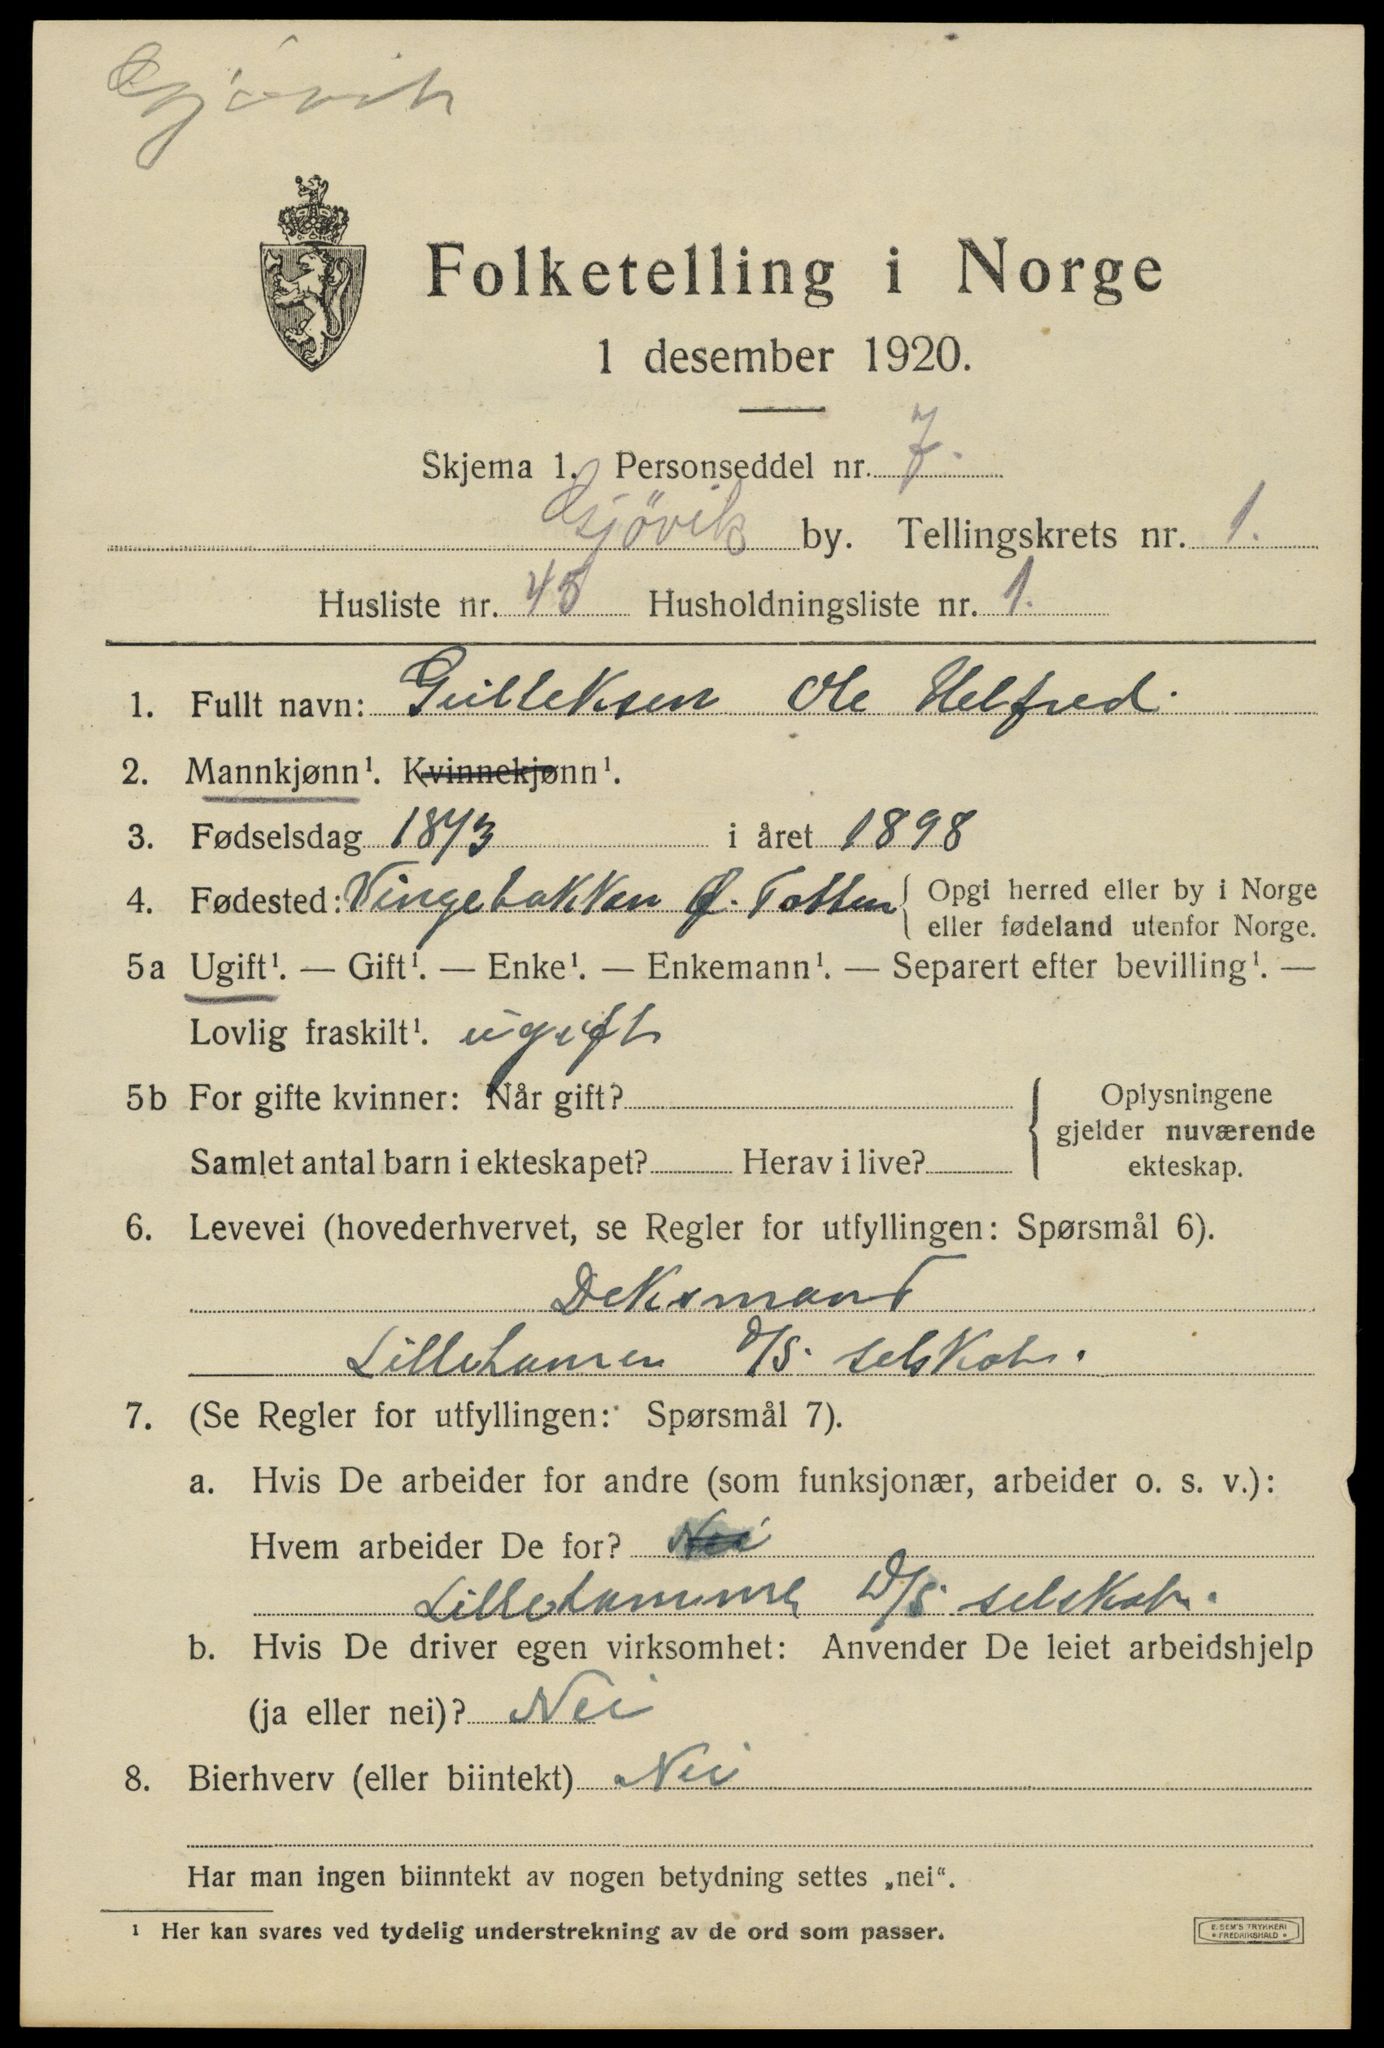 Gjövik
Folketelling i Norge
1 desember 1920.
Skjema 1. Personseddel nr. 7.
Gjövik by. Tellingskrets nr. 1.
Husliste nr. 45 Husholdningsliste nr. 1.
1. Fullt navn: Gulleksen Ole Helfred.
2. Mannkjønn¹. Kvinnekjønn¹.
3. Fødselsdag 18/3 i året 1898
4. Fødested: Vingebakken Ø. Totten { Opgi herred eller by i Norge
eller fødeland utenfor Norge.
5a Ugift¹. — Gift¹. — Enke¹. — Enkemann¹. — Separert efter bevilling¹. —
Lovlig fraskilt¹. ugift
5b For gifte kvinner: Når gift?
Samlet antal barn i ekteskapet? Herav i live?
{ Oplysningene
gjelder nuværende
ekteskap.
6. Levevei (hovederhvervet, se Regler for utfyllingen: Spørsmål 6).
Deksmand
D/S. selskab.
7. (Se Regler for utfyllingen: Spørsmål 7).
a. Hvis De arbeider for andre (som funksjonær, arbeider o. s. v.):
Hvem arbeider De for? Nei
Lillehammer D/S. selskab.
b. Hvis De driver egen virksomhet: Anvender De leiet arbeidshjelp
(ja eller nei)? Nei
8. Bierhverv (eller biintekt) Nei
Har man ingen biinntekt av nogen betydning settes „nei“.
¹ Her kan svares ved tydelig understrekning av de ord som passer.
E. SEM'S TRYKKERI
• FREDRIKSHALD •